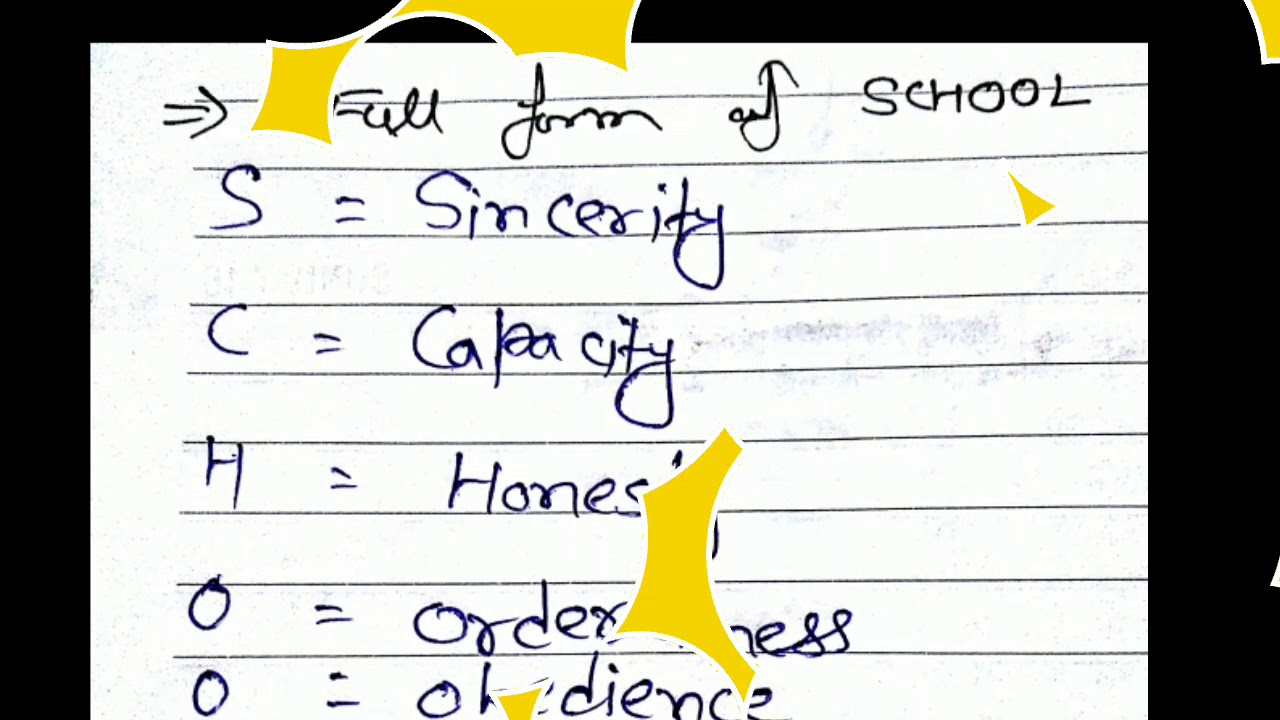 ⇒ Full form of SCHOOL
S = Sincerity
C = Capacity
H = Honesty
O = Orderliness
O = Obedience